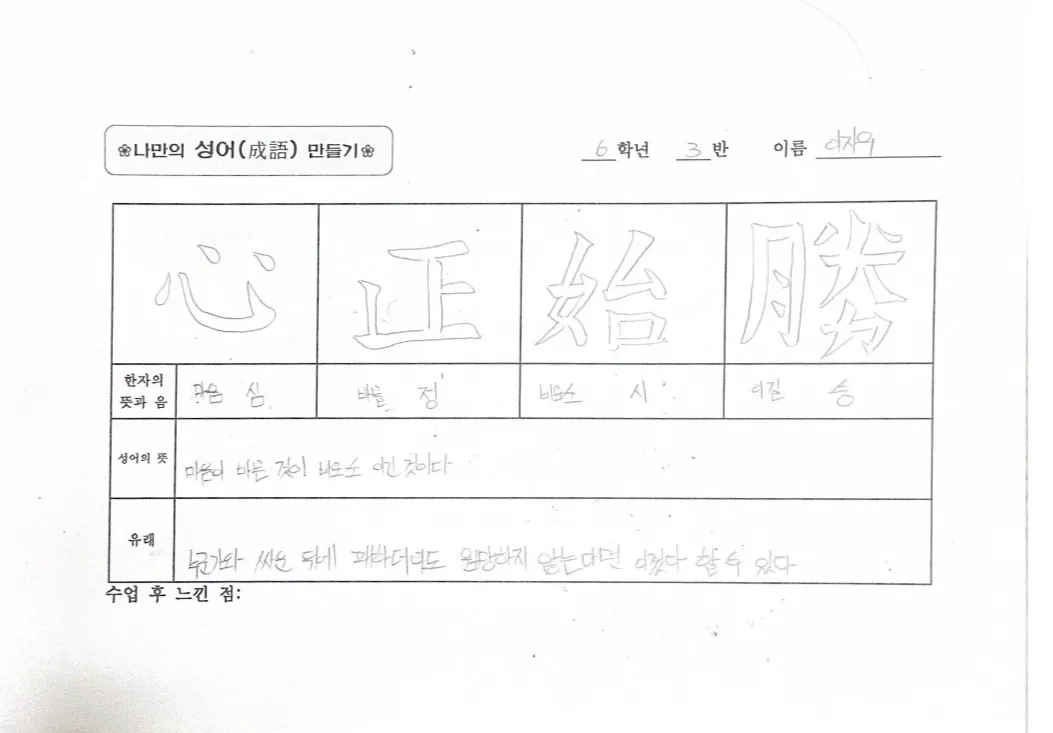 ❀나만의 성어(成語) 만들기❀
6 학년 3 반 이름
心 正 始 勝
한자의 뜻과 음 마음 심 바를 정 비로소 시 이길 승
성어의 뜻 마음이 바른 것이 비로소 이긴 것이다
유래 누군가와 싸운 뒤에 패하더라도 원망하지 않는다면 이겼다 할 수 있다
수업 후 느낀 점: